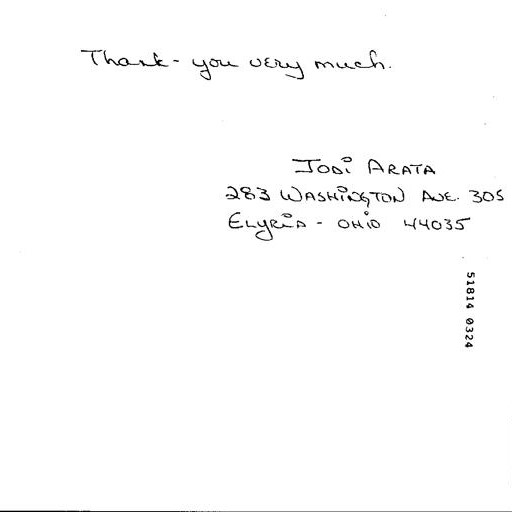 Thank-you very much.
Jodi Arata
283 Washington Ave. 305
Elyria - Ohio 44035
51814 0324